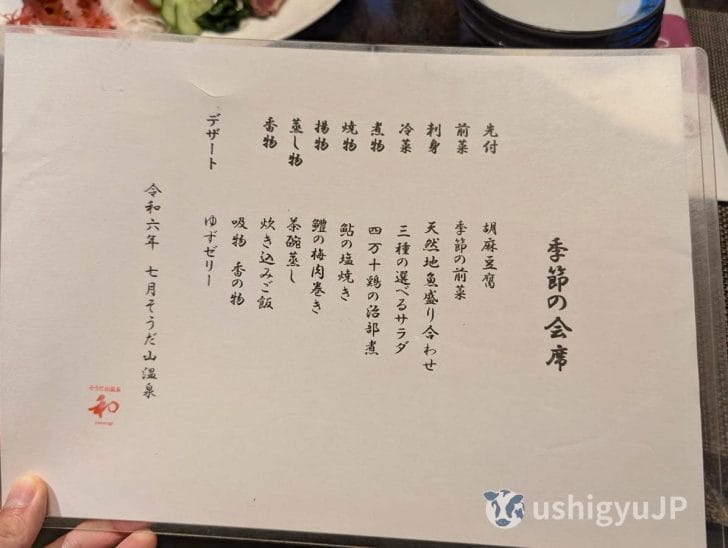 季節の会席
先付 胡麻豆腐
前菜 季節の前菜
刺身 天然地魚盛り合わせ
冷菜 三種の選べるサラダ
煮物 四万十鶏の治部煮
焼物 鮎の塩焼き
揚物 鱧の梅肉巻き
蒸し物 茶碗蒸し
香物 炊き込みご飯
吸物 香の物
デザート ゆずゼリー
令和六年 七月そうだ山温泉
そうだ山温泉
和
ushigyuJP